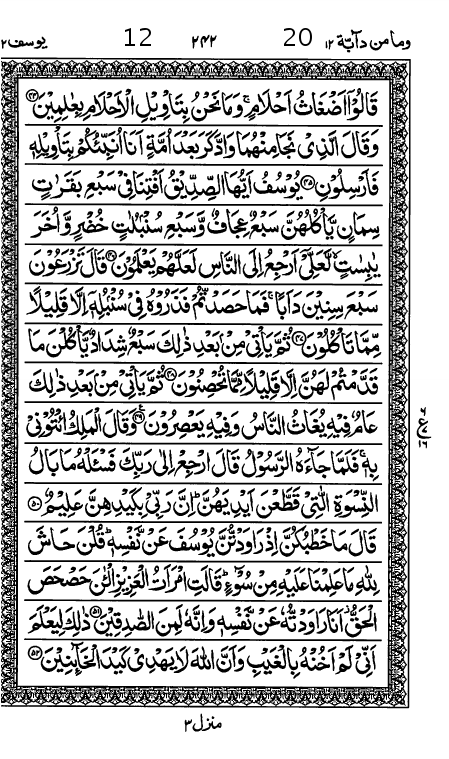 وما من دآبّة ١٢ 20 ٢٤٢ 12 يوسف ١٢
قَالُوْۤا اَضْغَاثُ اَحْلَامٍ ۚ وَمَا نَحْنُ بِتَاْوِیْلِ الْاَحْلَامِ بِعٰلِمِیْنَ ﴿۴۴﴾
وَقَالَ الَّذِیْ نَجَا مِنْهُمَا وَادَّكَرَ بَعْدَ اُمَّةٍ اَنَا اُنَبِّئُكُمْ بِتَاْوِیْلِهٖ
فَاَرْسِلُوْنِ ﴿۴۵﴾ یُوْسُفُ اَیُّهَا الصِّدِّیْقُ اَفْتِنَا فِیْ سَبْعِ بَقَرٰتٍ
سِمَانٍ یَّاْكُلُهُنَّ سَبْعٌ عِجَافٌ وَّسَبْعِ سُنْۢبُلٰتٍ خُضْرٍ وَّاُخَرَ
یٰبِسٰتٍ ۙ لَّعَلِّیْۤ اَرْجِعُ اِلَی النَّاسِ لَعَلَّهُمْ یَعْلَمُوْنَ ﴿۴۶﴾ قَالَ تَزْرَعُوْنَ
سَبْعَ سِنِیْنَ دَاَبًا ۚ فَمَا حَصَدْتُّمْ فَذَرُوْهُ فِیْ سُنْۢبُلِهٖۤ اِلَّا قَلِیْلًا
مِّمَّا تَاْكُلُوْنَ ﴿۴۷﴾ ثُمَّ یَاْتِیْ مِنْۢ بَعْدِ ذٰلِكَ سَبْعٌ شِدَادٌ یَّاْكُلْنَ مَا
قَدَّمْتُمْ لَهُنَّ اِلَّا قَلِیْلًا مِّمَّا تُحْصِنُوْنَ ﴿۴۸﴾ ثُمَّ یَاْتِیْ مِنْۢ بَعْدِ ذٰلِكَ
عَامٌ فِیْهِ یُغَاثُ النَّاسُ وَفِیْهِ یَعْصِرُوْنَ ﴿۴۹﴾ وَقَالَ الْمَلِكُ ائْتُوْنِیْ
بِهٖ ۚ فَلَمَّا جَآءَهُ الرَّسُوْلُ قَالَ ارْجِعْ اِلٰی رَبِّكَ فَسْـَٔلْهُ مَا بَالُ
النِّسْوَةِ الّٰتِیْ قَطَّعْنَ اَیْدِیَهُنَّ ؕ اِنَّ رَبِّیْ بِكَیْدِهِنَّ عَلِیْمٌ ﴿۵۰﴾
قَالَ مَا خَطْبُكُنَّ اِذْ رَاوَدْتُّنَّ یُوْسُفَ عَنْ نَّفْسِهٖ ؕ قُلْنَ حَاشَ
لِلّٰهِ مَا عَلِمْنَا عَلَیْهِ مِنْ سُوْٓءٍ ؕ قَالَتِ امْرَاَتُ الْعَزِیْزِ الْـٰٔنَ حَصْحَصَ
الْحَقُّ ۫ اَنَا رَاوَدْتُّهٗ عَنْ نَّفْسِهٖ وَاِنَّهٗ لَمِنَ الصّٰدِقِیْنَ ﴿۵۱﴾ ذٰلِكَ لِیَعْلَمَ
اَنِّیْ لَمْ اَخُنْهُ بِالْغَیْبِ وَاَنَّ اللّٰهَ لَا یَهْدِیْ كَیْدَ الْخَآئِنِیْنَ ﴿۵۲﴾
منزل ٣